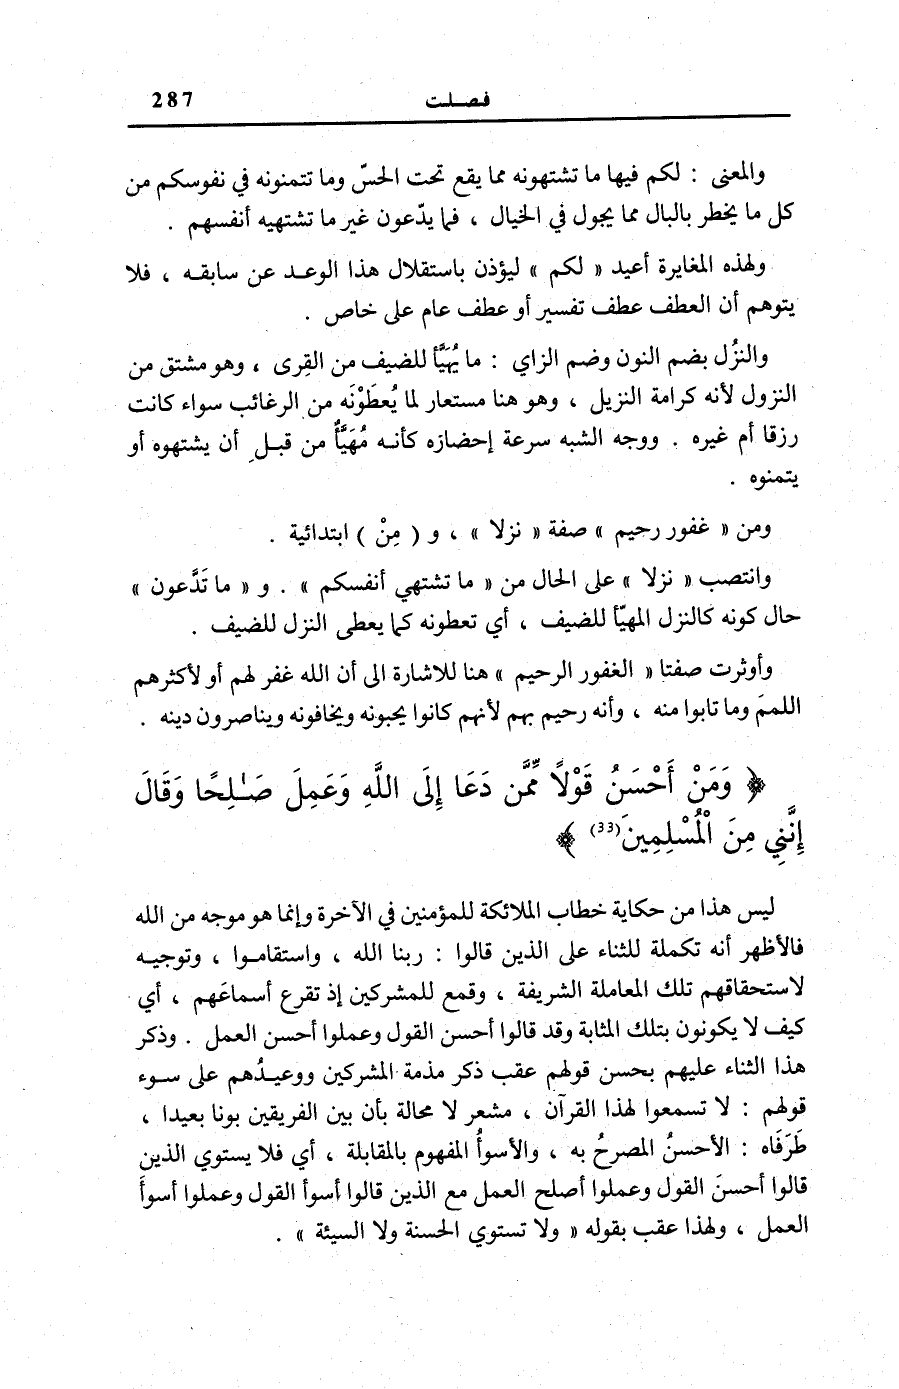 287 فصلت
والمعنى : لكم فيها ما تشتهونه مما يقع تحت الحسّ وما تتمنونه في نفوسكم من
كل ما يخطر بالبال مما يجول في الخيال ، فما يدّعون غير ما تشتهيه أنفسهم .
ولهذه المغايرة أعيد « لكم » ليؤذن باستقلال هذا الوعد عن سابقه ، فلا
يتوهم أن العطف عطف تفسير أو عطف عام على خاص .
والنزُل بضم النون وضم الزاي : ما يُهَيَّأ للضيف من القِرى ، وهو مشتق من
النزول لأنه كرامة النزيل ، وهو هنا مستعار لما يُعطَوْنَه من الرغائب سواء كانت
رزقا أم غيره . ووجه الشبه سرعة إحضازه كأنه مُهَيَّأٌ من قبلِ أن يشتهوه أو
يتمنوه .
ومن « غفور رحيم » صفة « نزلا » ، و ( مِنْ ) ابتدائية .
وانتصب « نزلا » على الحال من « ما تشتهي أنفسكم » . و « ما تَدَّعون »
حال كونه كالنزل المهيّأ للضيف ، أي تعطونه كما يعطى النزل للضيف .
وأوثرت صفتا « الغفور الرحيم » هنا للاشارة الى أن الله غفر لهم أو لأكثرهم
اللممَ وما تابوا منه ، وأنه رحيم بهم لأنهم كانوا يحبونه ويخافونه ويناصرون دينه .
﴿ وَمَنْ أَحْسَنُ قَوْلاً مِّمَّن دَعَا إِلَى اللَّهِ وَعَمِلَ صَـٰلِحًا وَقَالَ
إِنَّنِي مِنَ الْمُسْلِمِينَ(33) ﴾
ليس هذا من حكاية خطاب الملائكة للمؤمنين في الآخرة وإنما هو موجه من الله
فالأظهر أنه تكملة للثناء على الذين قالوا : ربنا الله ، واستقاموا ، وتوجيه
لاستحقاقهم تلك المعاملة الشريفة ، وقمع للمشركين إذ تقرع أسماعَهم ، أي
كيف لا يكونون بتلك المثابة وقد قالوا أحسن القول وعملوا أحسن العمل . وذكر
هذا الثناء عليهم بحسن قولهم عقب ذكر مذمة المشركين ووعيدُهم على سوء
قولهم : لا تسمعوا لهذا القرآن ، مشعر لا محالة بأن بين الفريقين بونا بعيدا ،
طَرَفَاه : الأحسنُ المصرحُ به ، والأسوأُ المفهوم بالمقابلة ، أي فلا يستوي الذين
قالوا أحسنَ القول وعملوا أصلح العمل مع الذين قالوا أسوأ القول وعملوا أسوأَ
العمل ، ولهذا عقب بقوله « ولا تستوي الحسنة ولا السيئة » .